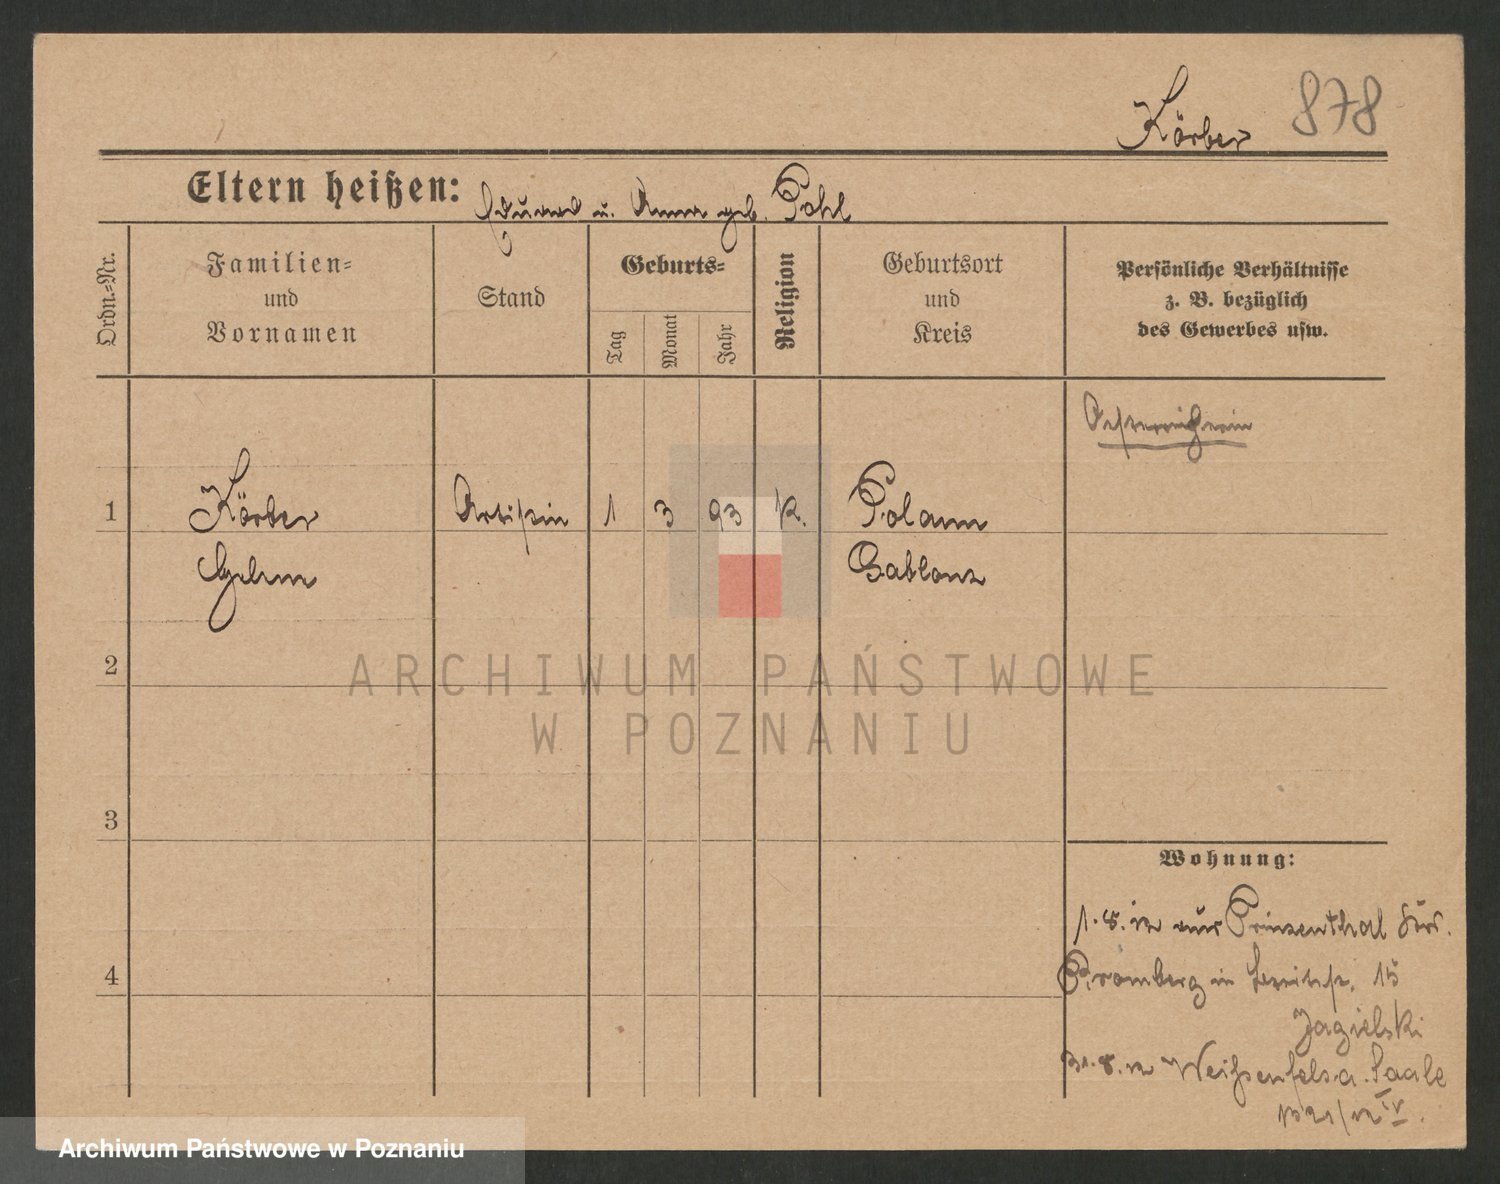 Körber 878
Eltern heißen: Eduard u. Anna geb. Pohl
Ordn.-Nr.
Familien-
und
Vornamen
Stand
Geburts-
Tag
Monat
Jahr
Religion
Geburtsort
und
Kreis
Persönliche Verhältnisse
z. B. bezüglich
des Gewerbes usw.
Oesterreicherin
1 Körber Artistin 1 3 93 K. Polaun
Gablonz
2
3
4
Wohnung:
1.8.12 aus Prinzenthal Krs.
Bromberg in 15
Jagielski
31.8.12 Weißenfels a. Saale
ARCHIWUM PAŃSTWOWE
W POZNANIU
Archiwum Państwowe w Poznaniu